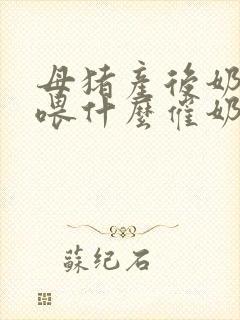 母猪產後奶
喂什麼催奶
蘇纪石